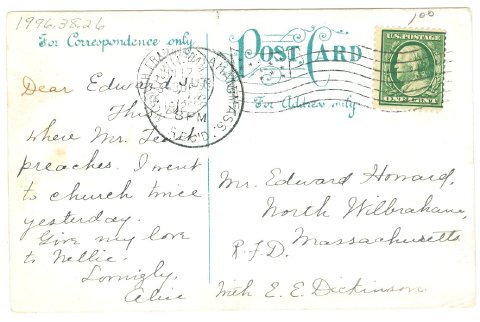 1996.38.26
100
For Correspondence only
POST CARD
For Address only
U.S. POSTAGE
ONE CENT
8 PM
REC'D.
MASS.
Dear Edward
This
where Mr.
preaches. I went
to church twice
yesterday.
Give my love
to Nellie.
Lovingly,
Alice
Mr. Edward Howard,
North Wilbraham,
Massachusetts
R.F.D.
With E. E. Dickinson.